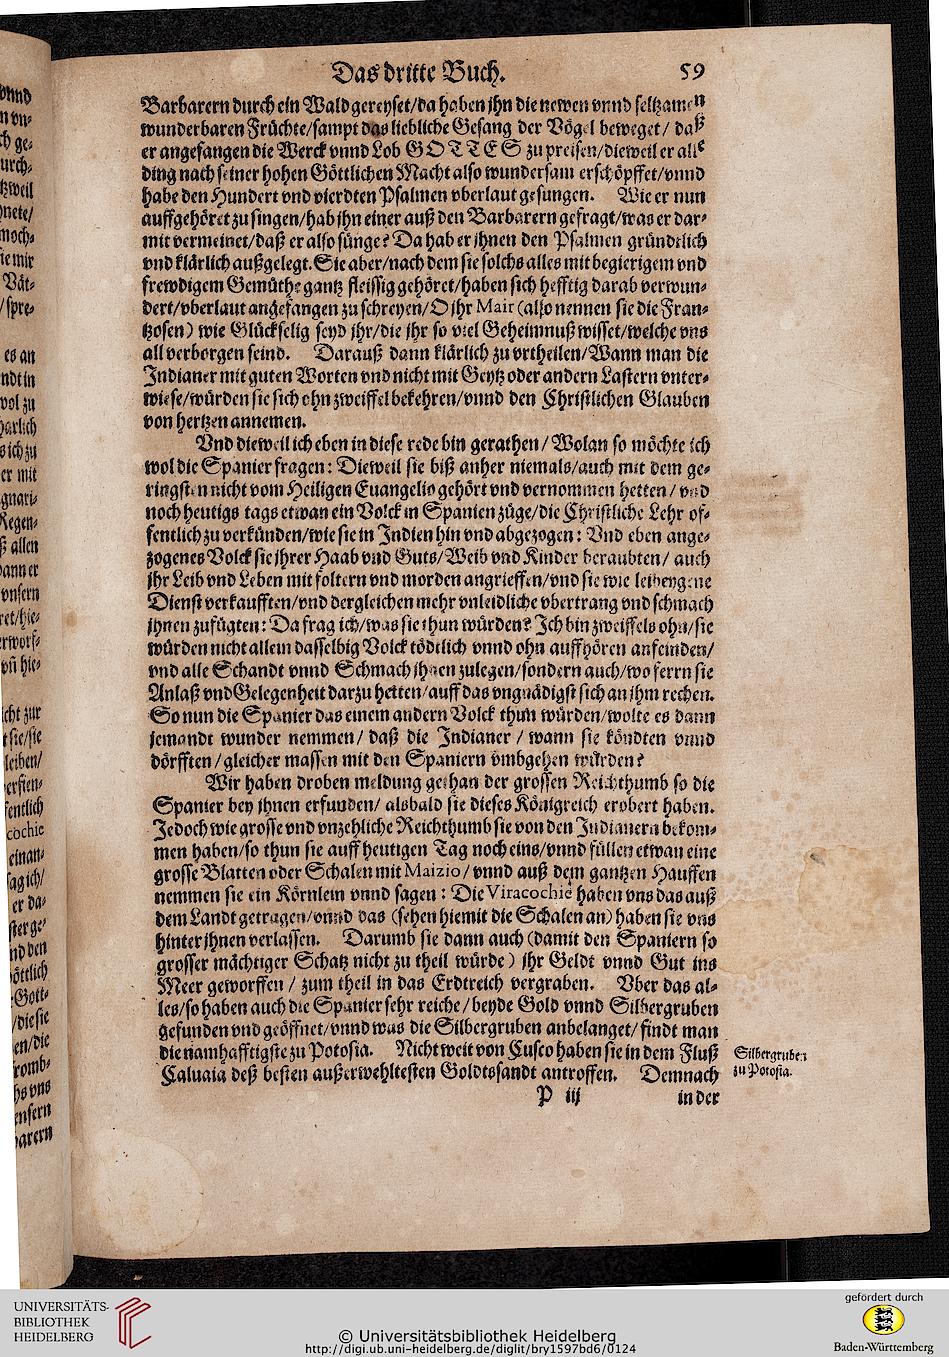 Das dritte Buch. 59
Barbarern durch ein Wald gereyset/ da haben jhn die newen vnnd seltzamen
wunderbaren Früchte/ sampt das liebliche Gesang der Vögel beweget/ daß
er angefangen die Werck vnnd Lob GOTTES zu preisen/ dieweil er alle
ding nach seiner hohen Göttlichen Macht also wundersam erschöpffet/ vnnd
habe den Hundert vnd vierdten Psalmen vberlaut gesungen. Wie er nun
auffgehöret zu singen/ hab jhn einer auß den Barbarern gefragt/ was er dar-
mit vermeinet/ daß er also sünge? Da hab er jhnen den Psalmen gründtlich
vnd klärlich außgelegt. Sie aber/ nach dem sie solchs alles mit begierigem vnd
frewdigem Gemüthe gantz fleissig gehöret/ haben sich hefftig darab verwun-
dert/ vberlaut angefangen zu schreyen/ O jhr Mair (also nennen sie die Fran-
tzosen) wie Glückselig seyd jhr/ die jhr so viel Geheimnuß wisset/ welche vns
all verborgen seind. Darauß dann klärlich zu vrtheilen/ Wann man die
Indianer mit guten Worten vnd nicht mit Geytz oder andern Lastern vnter-
wiese/ würden sie sich ohn zweiffel bekehren/ vnnd den Christlichen Glauben
von hertzen annemen.
Vnd dieweil ich eben in diese rede bin gerathen/ Wolan so möchte ich
wol die Spanier fragen: Dieweil sie biß anher niemals/ auch mit dem ge-
ringsten nicht vom Heiligen Euangelio gehört vnd vernommen hetten/ vnd
noch heutigs tags etwan ein Volck in Spanien züge/ die Christliche Lehr of-
fentlich zu verkünden/ wie sie in Indien hin vnd abgezogen: Vnd eben ange-
zogenes Volck sie jhrer Haab vnd Guts/ Weib vnd Kinder beraubten/ auch
jhr Leib vnd Leben mit foltern vnd morden angrieffen/ vnd sie wie leibeygene
Dienst verkaufften/ vnd dergleichen mehr vnleidliche vbertrang vnd schmach
jhnen zufügten: Da frag ich/ was sie thun würden? Ich bin zweiffels ohn/ sie
würden nicht allein dasselbig Volck tödtlich vnnd ohn auffhören anfeinden/
vnd alle Schandt vnnd Schmach jhnen zulegen/ sondern auch/ wo ferrn sie
Anlaß vnd Gelegenheit darzu hetten/ auff das vngnädigst sich an jhm rechen.
So nun die Spanier das einem andern Volck thun würden/ wolte es dann
jemandt wunder nemmen/ daß die Indianer/ wann sie köndten vnnd
dörfften/ gleicher massen mit den Spaniern vmbgehen würden?
Wir haben droben meldung gethan der grossen Reichthumb so die
Spanier bey jhnen erfunden/ alsbald sie dieses Königreich erobert haben.
Jedoch wie grosse vnd vnzehliche Reichthumb sie von den Indianern bekom-
men haben/ so thun sie auff heutigen Tag noch eins/ vnnd füllen etwan eine
grosse Blatten oder Schalen mit Maizio/ vnnd auß dem gantzen Hauffen
nemmen sie ein Körnlein vnnd sagen: Die Viracochie haben vns das auß
dem Landt getragen/ vnnd das (sehen hiemit die Schalen an) haben sie vns
hinter jhnen verlassen. Darumb sie dann auch (damit den Spaniern so
grosser mächtiger Schatz nicht zu theil würde) jhr Geldt vnnd Gut ins
Meer geworffen/ zum theil in das Erdtreich vergraben. Vber das al-
les/ so haben auch die Spanier sehr reiche/ beyde Gold vnnd Silbergruben
gefunden vnd geöffnet/ vnnd was die Silbergruben anbelanget/ findt man
die namhafftigste zu Potosia. Nicht weit von Cusco haben sie in dem Fluß
Caluaia deß besten außerwehltesten Goldtssandt antroffen. Demnach
Silbergruben
zu Potosia.
P iij in der
UNIVERSITÄTS-
BIBLIOTHEK
HEIDELBERG
© Universitätsbibliothek Heidelberg
http://digi.ub.uni-heidelberg.de/diglit/bry1597bd6/0124
gefördert durch
Baden-Württemberg